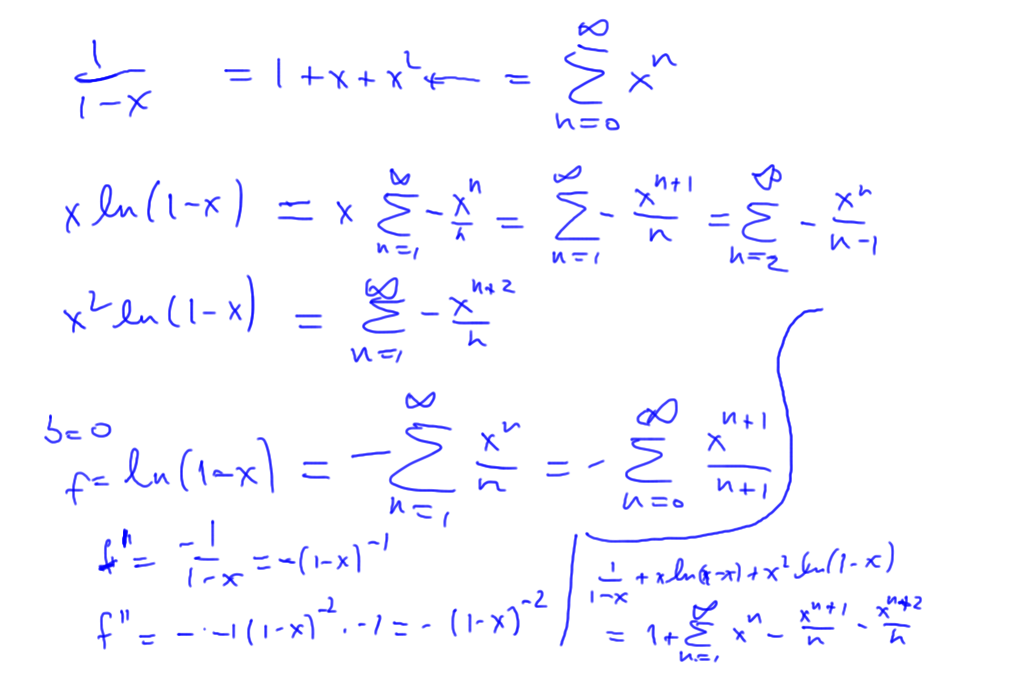 1/(1-x) = 1 + x + x² ← = ∑_{n=0}^{∞} xⁿ
x ln(1-x) = x ∑_{n=1}^{∞} - xⁿ/n = ∑_{n=1}^{∞} - x^{n+1}/n = ∑_{n=2}^{∞} - xⁿ/(n-1)
x² ln(1-x) = ∑_{n=1}^{∞} - x^{n+2}/n
b=0
f = ln(1-x) = -∑_{n=1}^{∞} xⁿ/n = -∑_{n=0}^{∞} x^{n+1}/(n+1)
f' = -1/(1-x) = -(1-x)^{-1}
f'' = - · -1(1-x)^{-2} · -1 = -(1-x)^{-2}
1/(1-x) + x ln(1-x) + x² ln(1-x)
= 1 + ∑_{n=1}^{∞} xⁿ - x^{n+1}/n - x^{n+2}/n